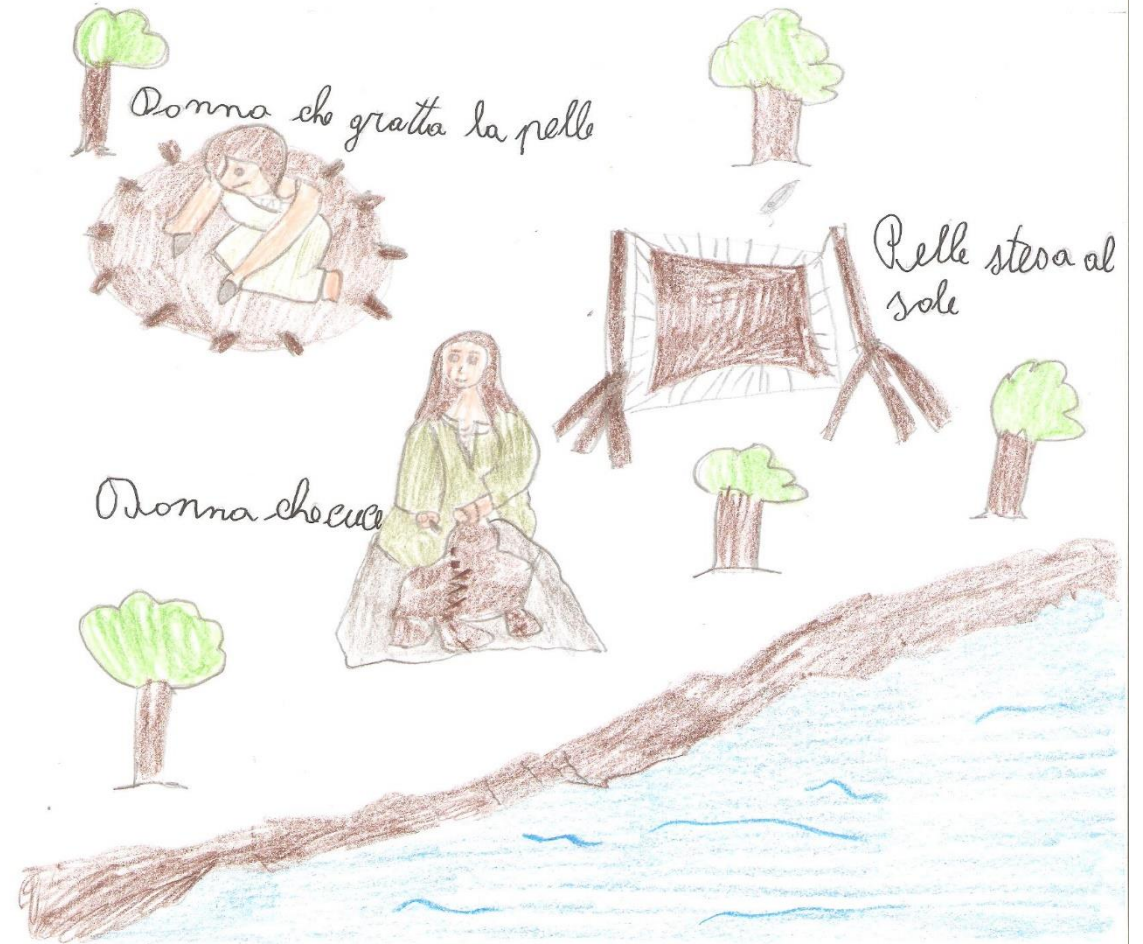 Donna che gratta la pelle
Pelle stesa al
sole
Donna che cuce